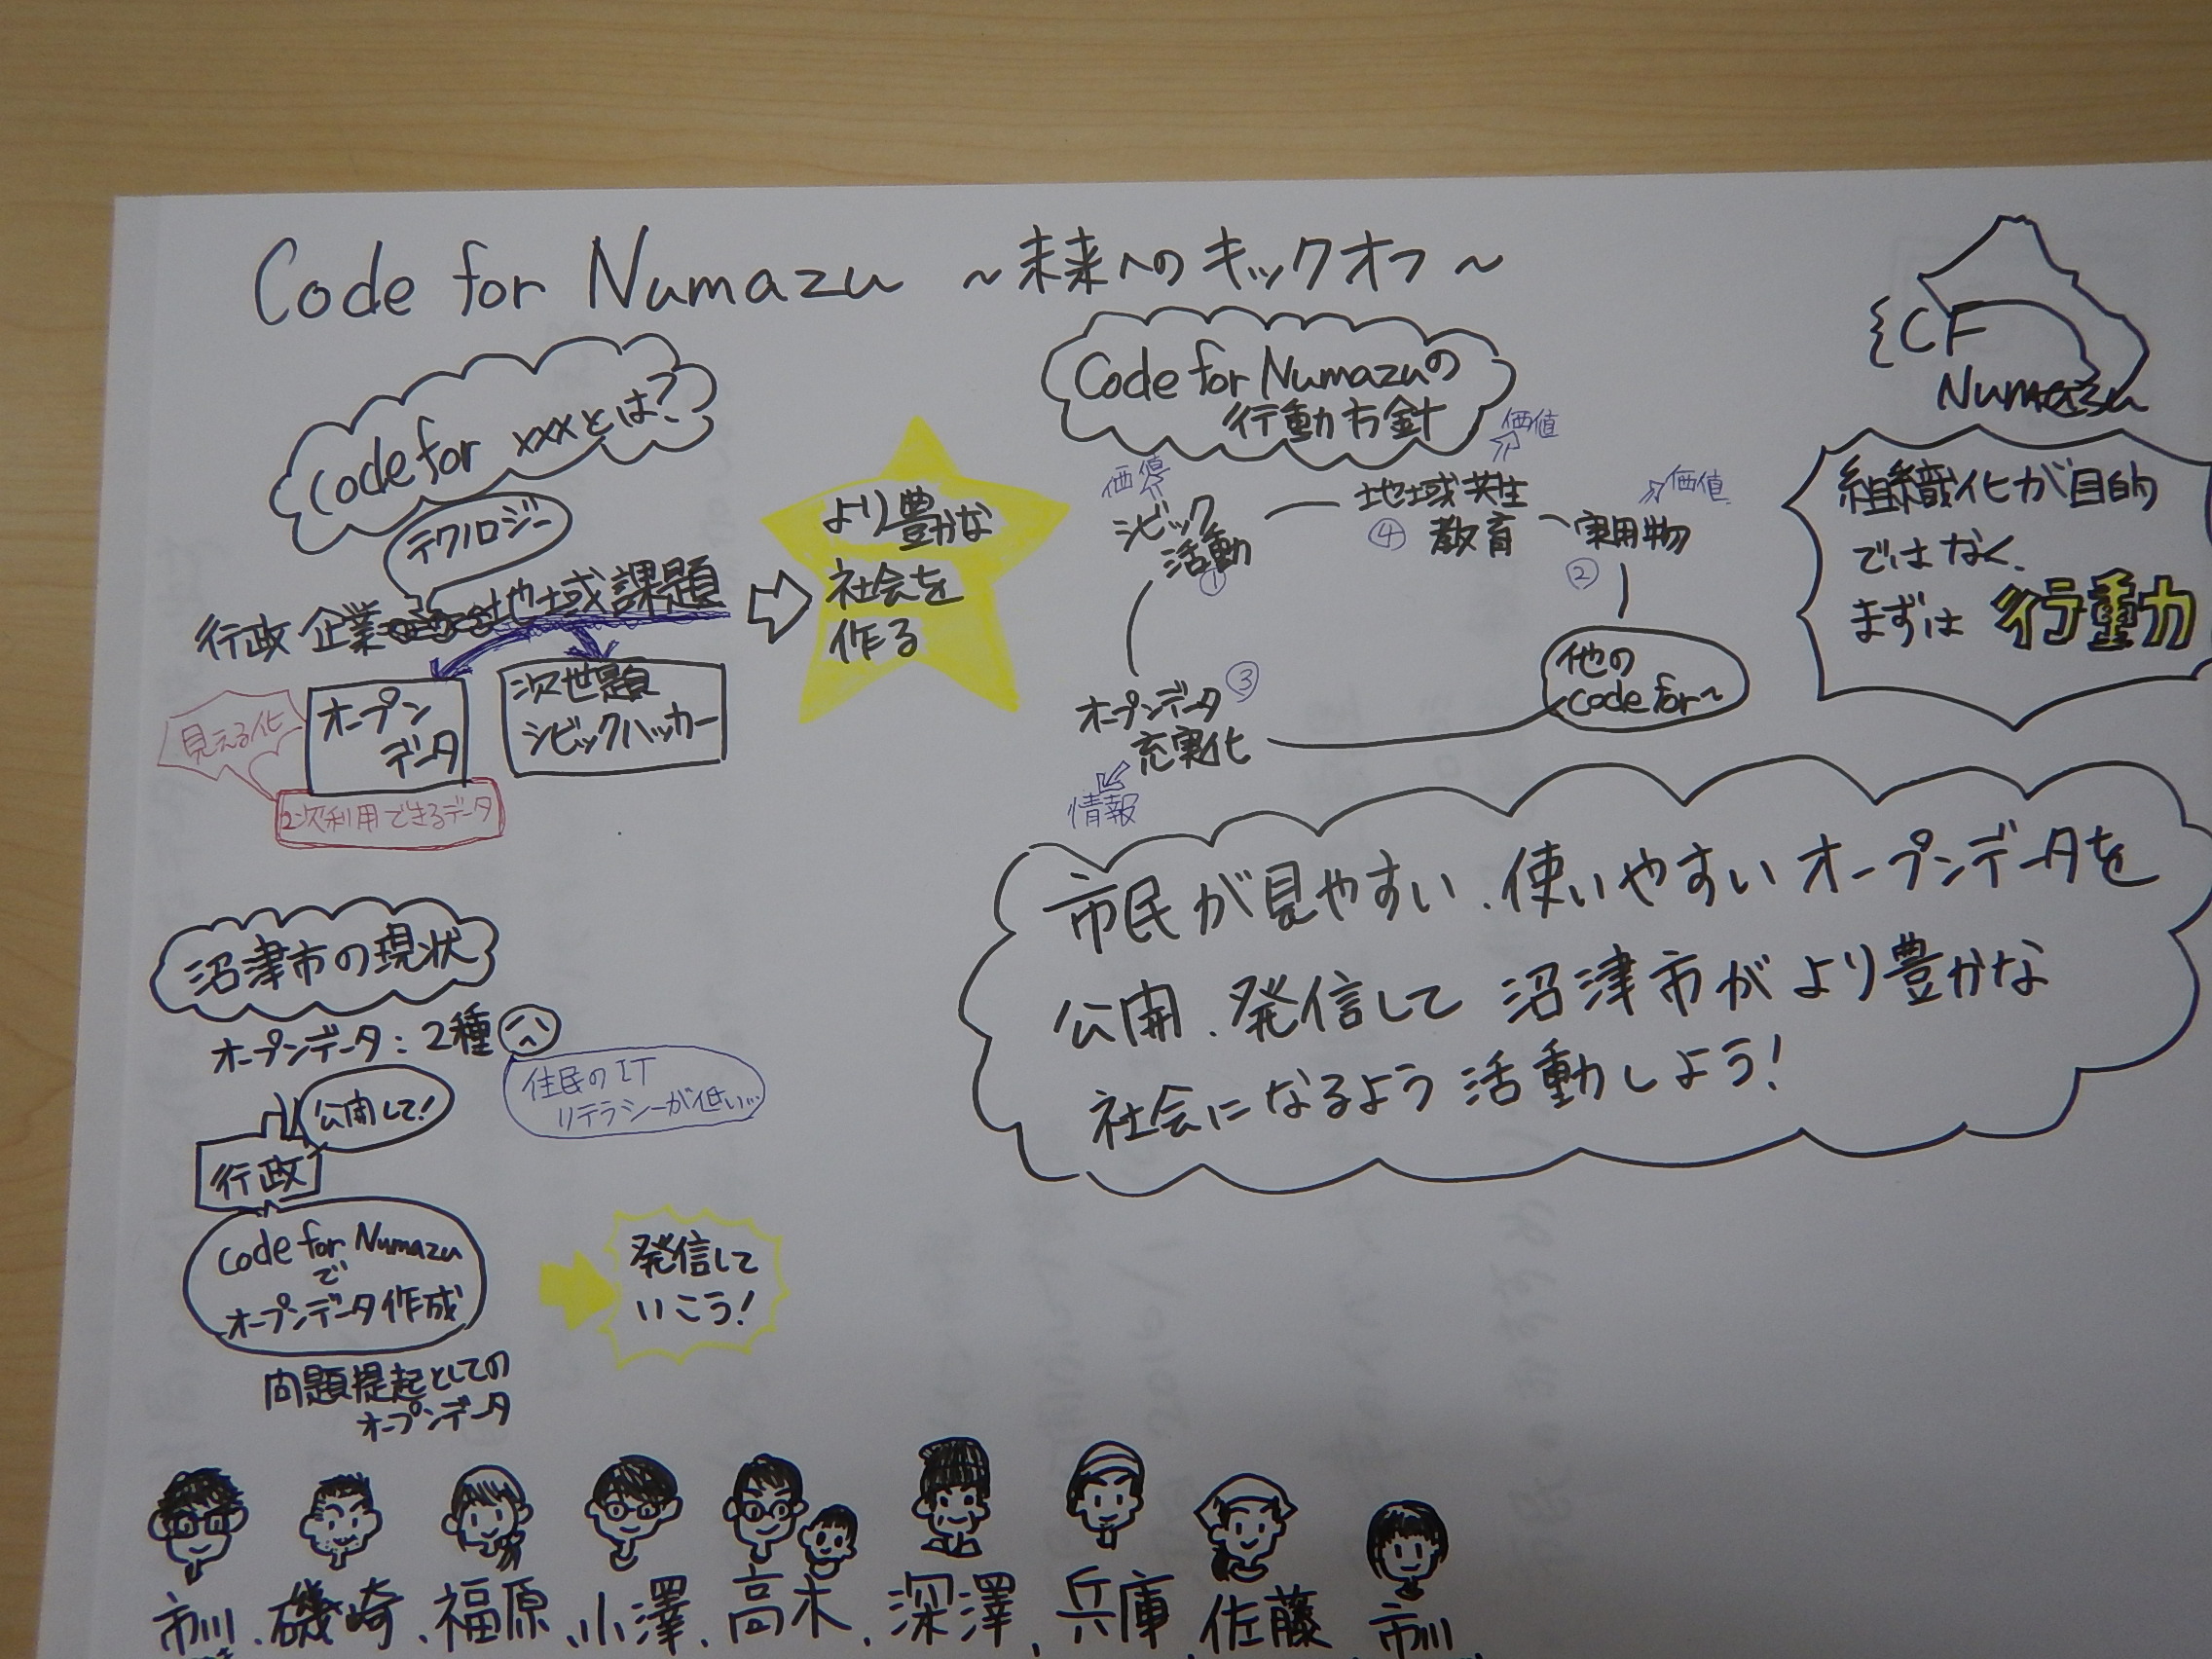 Code for Numazu ～未来へのキックオフ～
{CF
Numazu
Code for xxxとは?
テクノロジー
行政 企業 地域課題
より豊かな
社会を
作る
オープン
データ
次世題
シビックハッカー
見える化
2次利用できるデータ
Code for Numazuの
行動方針
価値
シビック
活動
①
価値
地域共生
④ 教育
価値
実用物
②
他の
Code for～
オープンデータ ③
充実化
情報
組織化が目的
ではなく、
まずは 行動力
市民が見やすい、使いやすいオープンデータを
公開、発信して 沼津市がより豊かな
社会になるよう活動しよう!
沼津市の現状
オープンデータ：2種
住民のIT
リテラシーが低い…
公開して!
行政
Code for Numazu
で
オープンデータ作成
問題提起としての
オープンデータ
発信して
いこう!
市川、磯崎、福原、小澤、高木、深澤、兵庫、佐藤 市川